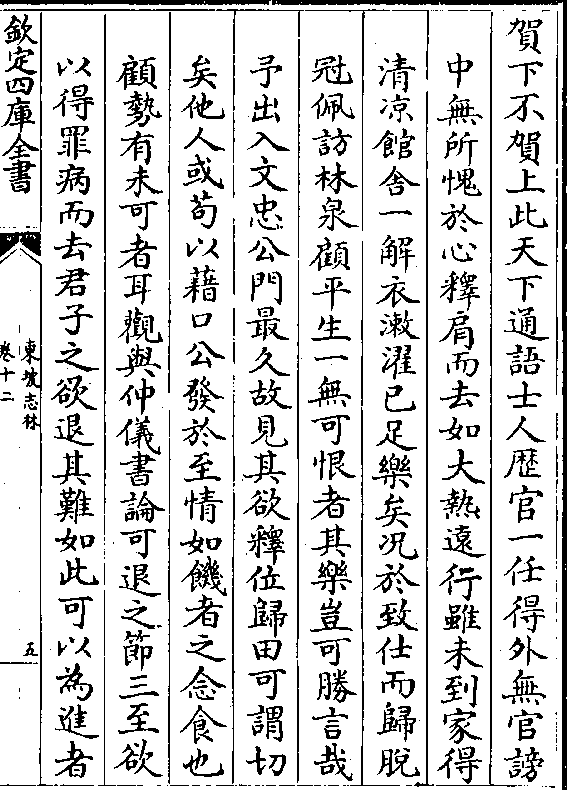 賀下不賀上此天下通語士人歴官一任得外無官謗
中無所愧於心釋肩而去如大熱逺行雖未到家得
清凉館舍一解衣漱濯已足樂矣况於致仕而歸脱
冠佩訪林泉顧平生一無可恨者其樂豈可勝言哉
予出入文忠公門最久故見其欲釋位歸田可謂切
矣他人或茍以藉口公發於至情如饑者之念食也
顧勢有未可者耳觀與仲儀書論可退之節三至欲
以得罪病而去君子之欲退其難如此可以為進者
欽定四庫全書
東坡志林
卷十二
五